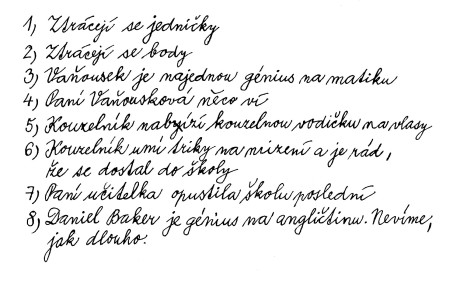 1) Ztrácejí se jedničky
2) Ztrácejí se body
3) Vaňousek je najednou génius na matiku
4) Paní Vaňousková něco ví
5) Kouzelník nabízí kouzelnou vodičku na vlasy
6) Kouzelník umí triky na mizení a je rád,
že se dostal do školy
7) Paní učitelka opustila školu poslední
8) Daniel Baker je génius na angličtinu. Nevíme,
jak dlouho.